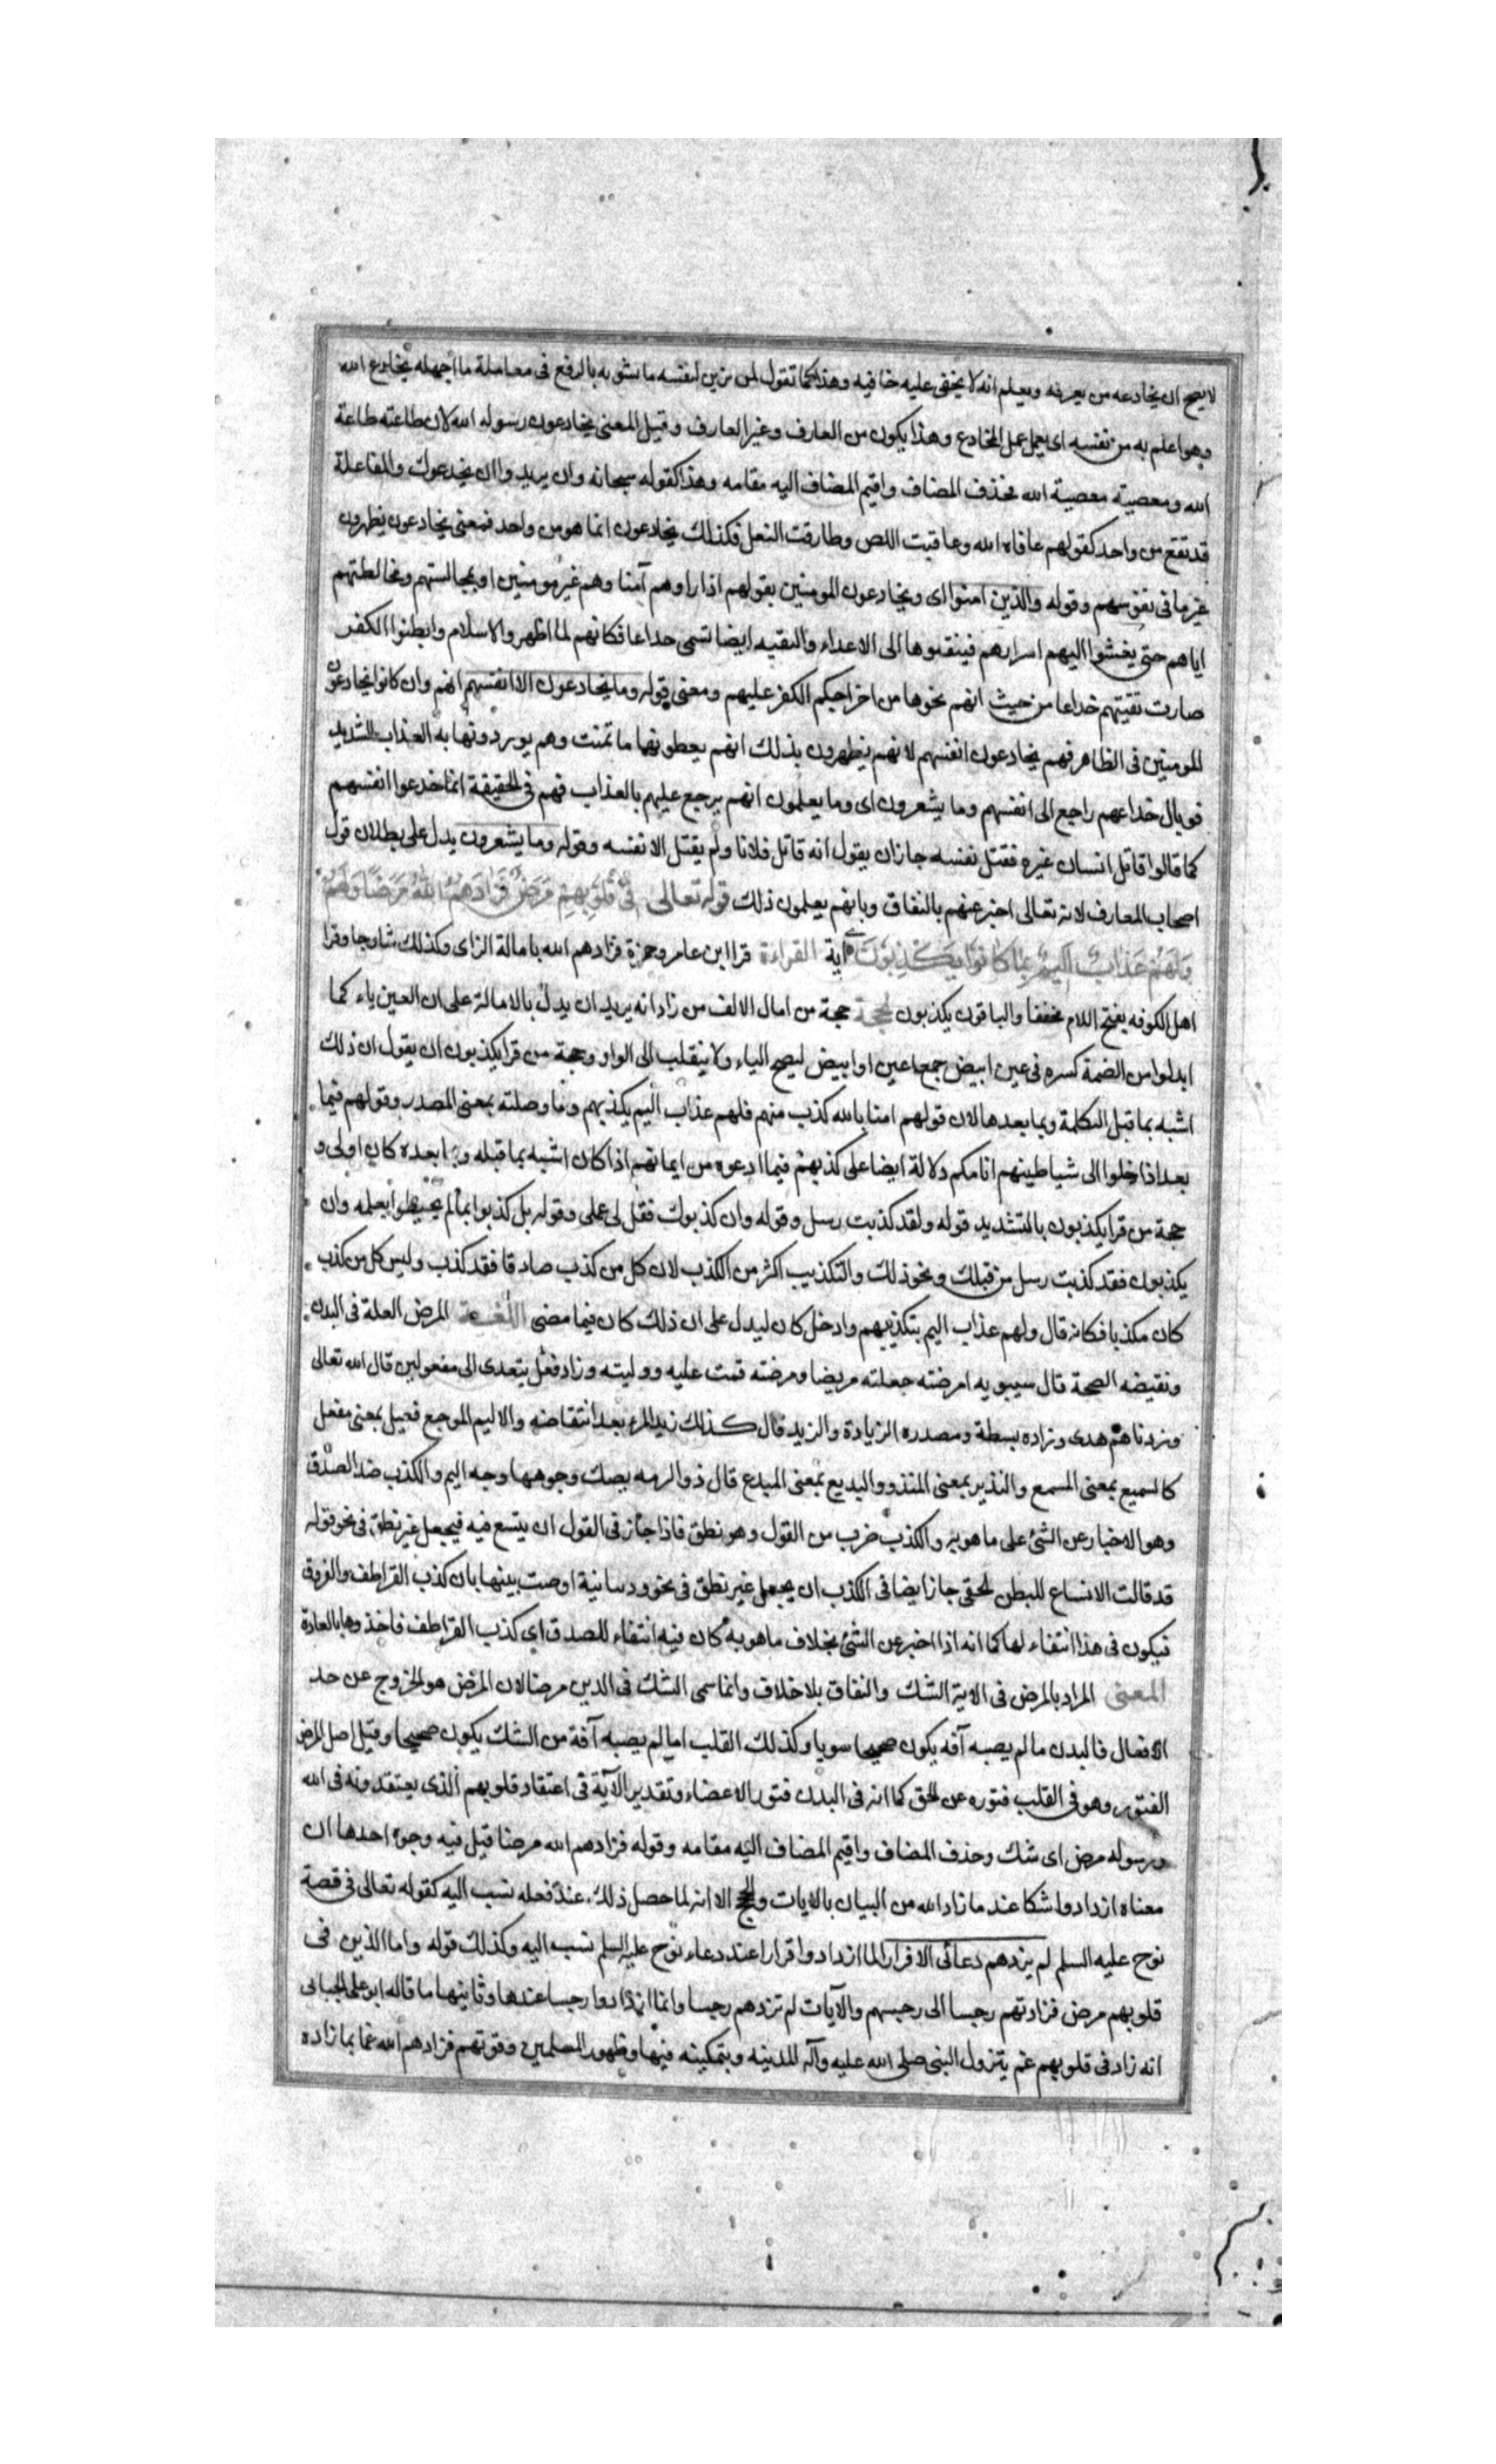 لا يصح ان يخادعه من يعرفه ويعلم انه لا يخفى عليه خافيه وهذا كما تقول لمن يزين لنفسه ما يشوبه بالرفع فى معاملة ما اجهله يخادع الله
وهو اعلم به من نفسه اى يعمل عمل المخادع وهذا يكون من العارف وغير العارف وقيل المعنى يخادعون رسوله الله لان طاعته طاعة
الله ومعصيته معصية الله فحذف المضاف واقيم المضاف اليه مقامه وهذا كقوله سبحانه وان يريدوا ان يخدعوك والمفاعلة
قد تقع من واحد كقولهم عافاه الله وعاقبت اللص وطارقت النعل فكذلك يخادعون انما هو من واحد فمعنى يخادعون يظهرون
غير ما فى نفوسهم وقوله والذين امنوا اى ويخادعون المومنين بقولهم اذا راوهم آمنا وهم غير مومنين او بمجالستهم ومخالطتهم
اياهم حتى يفشوا اليهم اسرارهم فينقلوها الى الاعداء والتقيه ايضا تسمى خداعا فكانهم لما اظهروا الاسلام وابطنوا الكفر
صارت تقيتهم خداعا من حيث انهم نجوا بها من اجراء حكم الكفر عليهم ومعنى قوله وما يخادعون الا انفسهم انهم وان كانوا يخادعون
المومنين فى الظاهر فهم يخادعون انفسهم لانهم يظهرون بذلك انهم يعطونها ما تمنت وهم يوردونها به العذاب الشديد
فوبال خداعهم راجع الى انفسهم وما يشعرون اى وما يعلمون انهم يرجع عليهم بالعذاب فهم فى الحقيقة انما خدعوا انفسهم
كما قالوا قاتل انسان غيره فقتل نفسه جاز ان يقول انه قاتل فلانا ولم يقتل الا نفسه وقوله وما يشعرون يدل على بطلان قول
اصحاب المعارف لانه تعالى اخبر عنهم بالنفاق وبانهم يعلمون ذلك قوله تعالى فِى قُلُوبِهِمْ مَرَضٌ فَزَادَهُمُ اللهُ مَرَضًا وَلَهُمْ
وَلَهُمْ عَذَابٌ اَلِيمٌ بِمَا كَانُوا يَكْذِبُونَ آية القراءة قرا ابن عامر وحمزة فزادهم الله بامالة الزاى وكذلك شاء وجاء وقرا
اهل الكوفه بفتح اللام مخففا والباقون يكذبون الحجة حجة من امال الالف من زاد انه يريد ان يدل بالامالة على ان العين ياء كما
ابدلوا من الضمة كسره فى عين ابيض جمعا عين او ابيض ليصح الياء ولا ينقلب الى الواو وحجة من قرا يكذبون ان يقول ان ذلك
اشبه بما قبل الكلمة وبما بعدها لان قولهم امنا بالله كذب منهم فلهم عذاب اليم بكذبهم وما وصلته بمعنى المصدر وقولهم فيما
بعد اذا خلوا الى شياطينهم انا معكم دلالة ايضا على كذبهم فيما ادعوه من ايمانهم اذا كان اشبه بما قبله وبما بعده كان اولى و
حجة من قرا يكذبون بالتشديد قوله ولقد كذبت رسل وقوله وان كذبوك فقل لى عملى وقوله بل كذبوا بما لم يحيطوا بعلمه وان
يكذبون فقد كذبت رسل من قبلك ونحو ذلك والتكذيب اكثر من الكذب لان كل من كذب صادقا فقد كذب وليس كل من كذب
كان مكذبا فكانه قال ولهم عذاب اليم بتكذيبهم وادخل كان ليدل على ان ذلك كان فيما مضى اللغة المرض العلة فى البدن
ونقيضه الصحة قال سيبويه امرضته جعلته مريضا ومرضته قمت عليه ووليته وزاد فعل يتعدى الى مفعولين قال الله تعالى
وزدناهم هدى وزاده بسطة ومصدره الزيادة والزيد قال كذلك زيد المرء بعد انتقاضه والاليم الموجع فعيل بمعنى مفعل
كالسميع بمعنى المسمع والنذير بمعنى المنذر والبديع بمعنى المبدع قال ذو الرمه يصك وجوهها وجه اليم والكذب ضد الصدق
وهو الاخبار عن الشئ على ما هو به والكذب ضرب من القول وهو نطق فاذا جاز فى القول ان يتسع فيه فيجعل غير نطق فى نحو قوله
قد قالت الانساع للبطن الحقى جاز ايضا فى الكذب ان يجعل غير نطق فى نحو وذبيانية اوصت بنيها بان كذب القراطف والقروف
فيكون فى هذا انتفاء لها كما انه اذا اخبر عن الشئ بخلاف ما هو به كان فيه انتفاء للصدق اى كذب القراطف فاخذوها بالعادة
المعنى المراد بالمرض فى الاية الشك والنفاق بلا خلاف وانما سمى الشك فى الدين مرضا لان المرض هو الخروج عن حد
الافعال فالبدن ما لم يصبه آفه يكون صحيحا سويا وكذلك القلب اما لم يصبه آفة من الشك يكون صحيحا وقيل اصل المرض
الفتور وهو فى القلب فتوره عن الحق كما انه فى البدن فتور الاعضاء وتقدير الآية فى اعتقاد قلوبهم الذى يعتقدونه فى الله
ورسوله مرض اى شك وحذف المضاف واقيم المضاف اليه مقامه وقوله فزادهم الله مرضا قيل فيه وجوه احدها ان
معناه ازدادوا شكا عند ما زاد الله من البيان بالايات والحجج الا انه لما حصل ذلك عند فعله نسب اليه كقوله تعالى فى قصة
نوح عليه السلم لم يزدهم دعائى الا فرارا لما ازدادوا قرارا عند دعاء نوح عليه السلم نسب اليه وكذلك قوله واما الذين فى
قلوبهم مرض فزادتهم رجسا الى رجسهم والآيات لم تزدهم رجسا وانما ازدادوا رجسا عندها وثانيها ما قاله ابو على الجبائى
انه زاد فى قلوبهم غم بنزول النبى صلى الله عليه وآله المدينه وبتمكينه فيها وظهور المسلمين وقوتهم فزادهم الله غما بما زاده